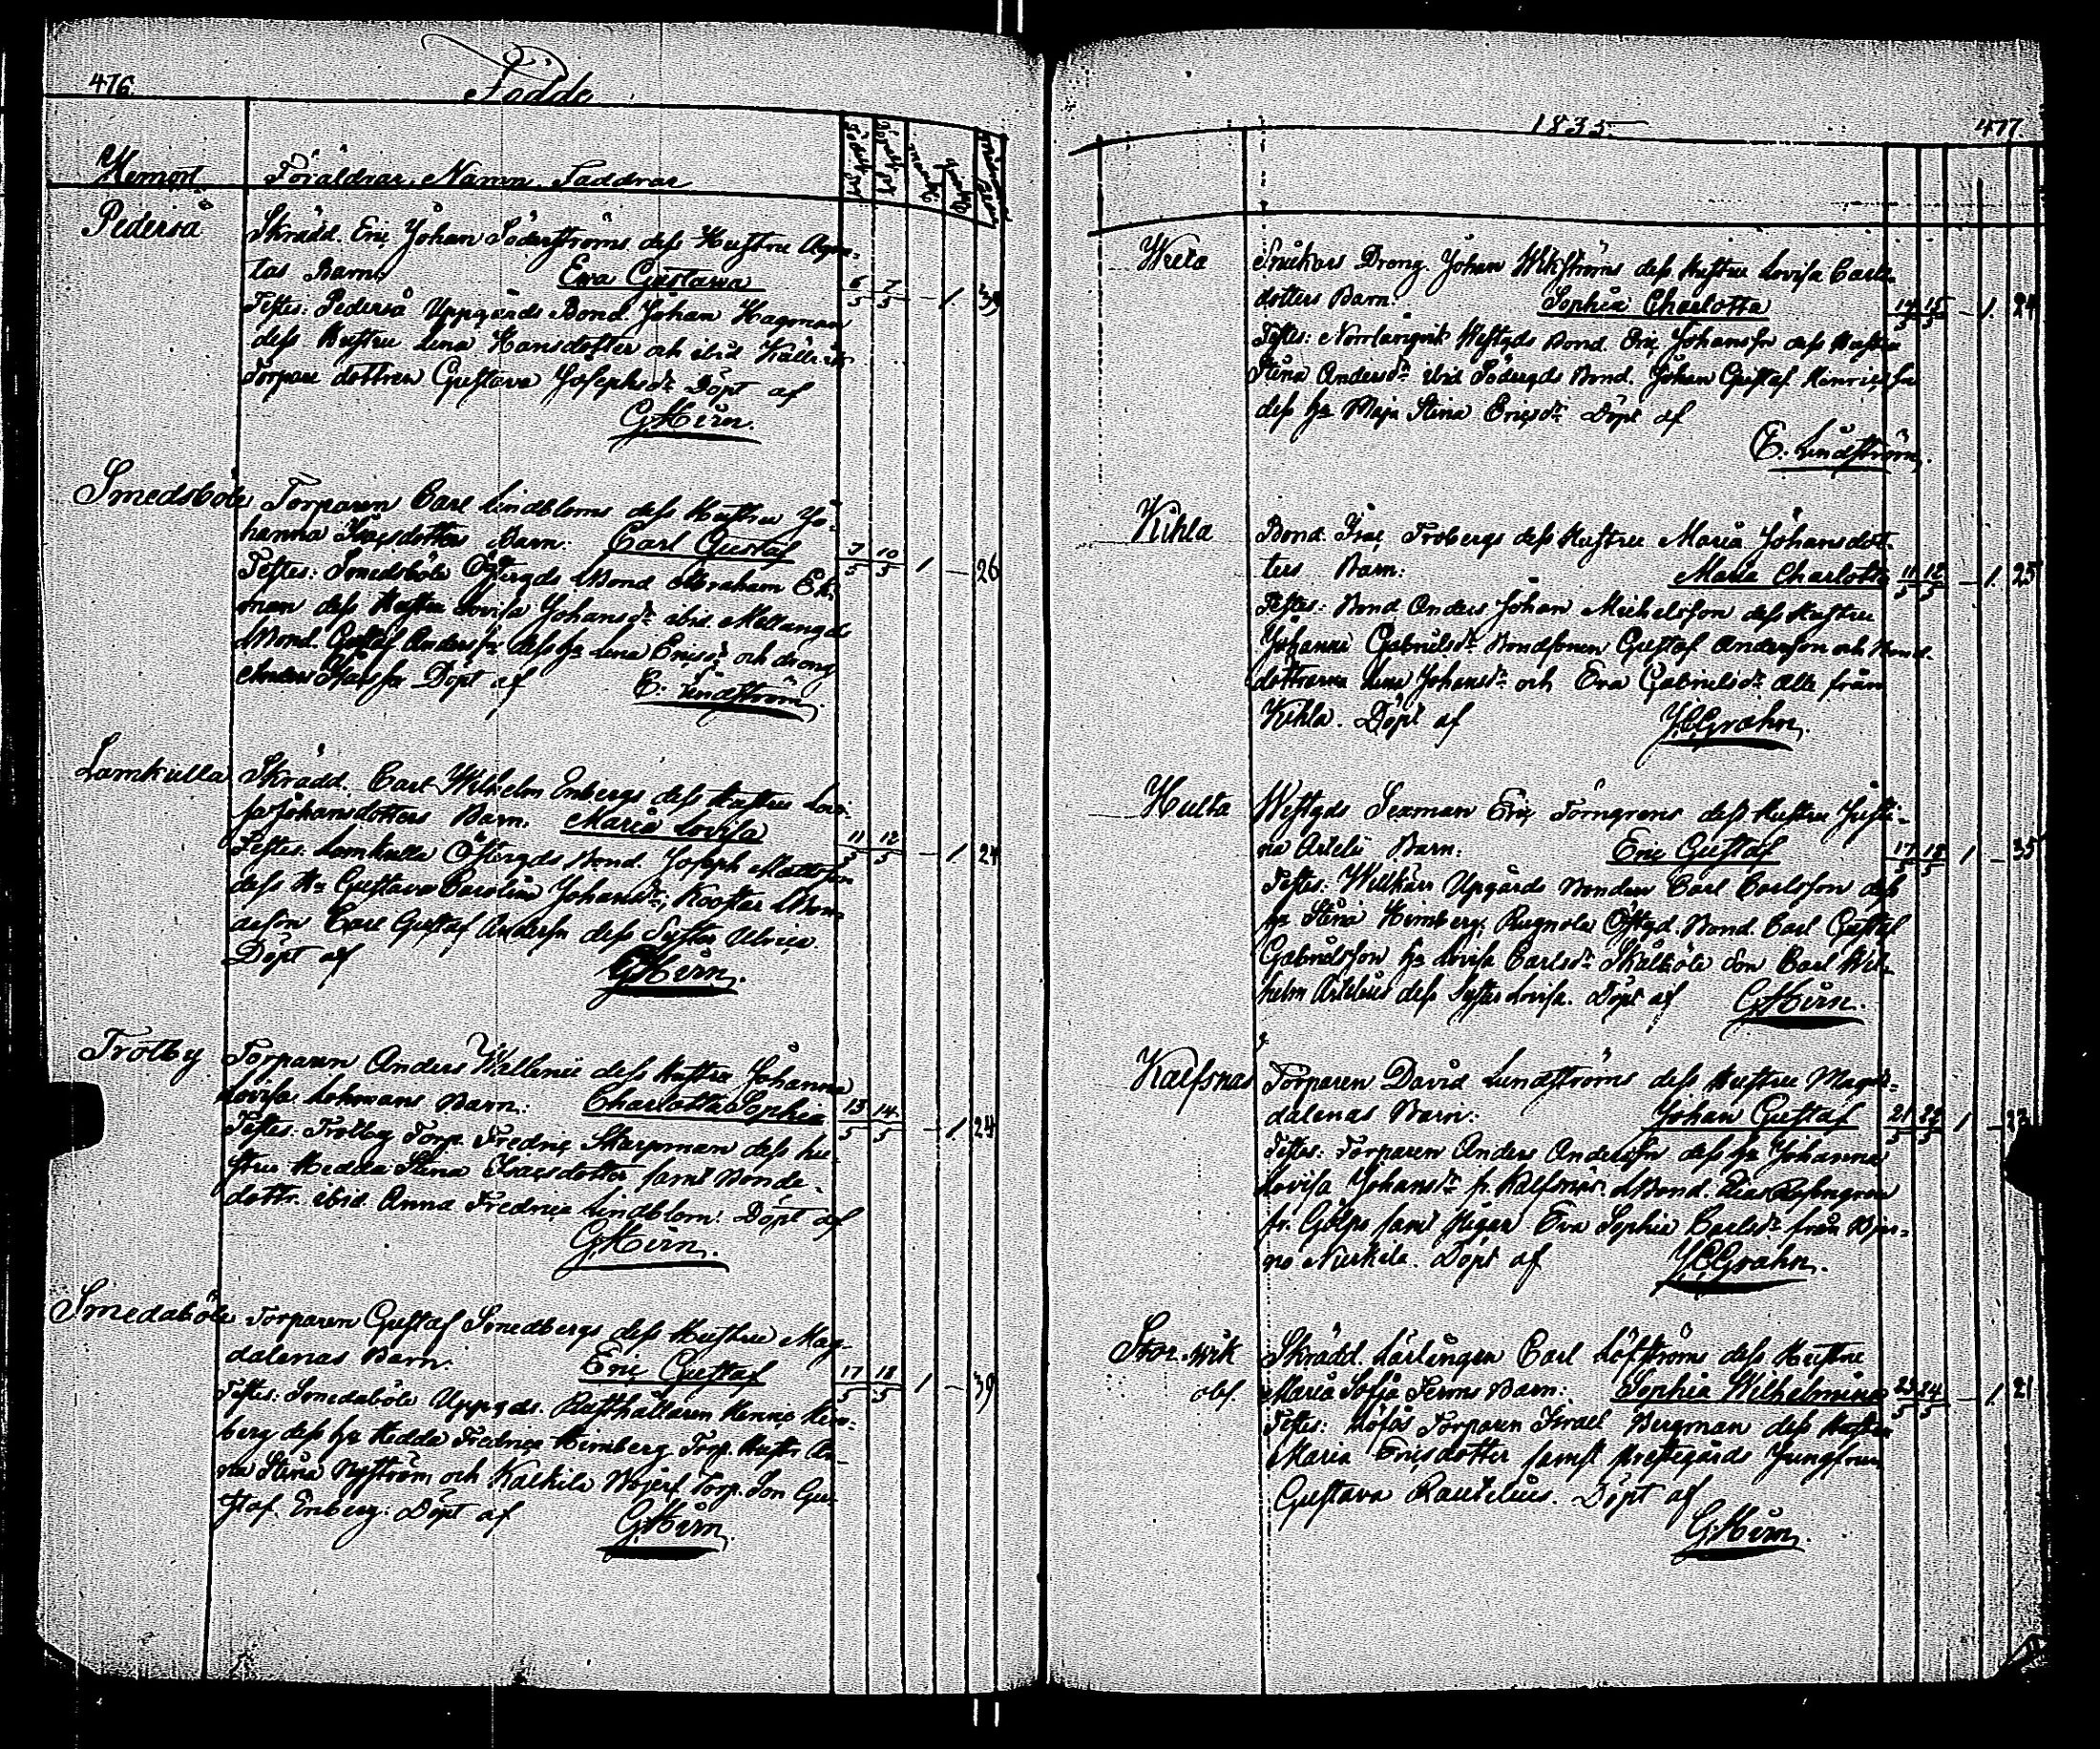 476
Födde
Hemort Föräldrar, Namn, Faddrar
Pederså Skrädd. Eric Johan Söderströms dess Hustru Agne-
tas Barn: Ewa Gustava 6/5 7/5 - 1. 39
Testes: Pederså Uppgårds Bond. Johan Hagman
dess Hustru Lena Hansdotter och ibid
Torpare dottren Gustava Josephsdr Döpt af
G. Hirn.
Smedsböle Torparen Carl Lindbloms dess Hustru Jo-
hanna Isacsdotters Barn: Carl Gustaf 7/5 10/5 1 - 26
Testes: Smedsböle Östergds Bond Abraham Ek-
man dess Hustru Lovisa Johansdr ibid. Mellangds
Bond. Gustaf Andersson dess hu Lena Ericsdr och dreng
Döpt af E. Lindström.
Lamkulla Skrädd. Carl Wilhelm Enbergs dess Hustru Lovi-
sa Johansdotters Barn: Maria Lovisa 11/5 12/5 - 1. 24
Testes: Lamkulla Östergds Bond. Joseph Mattsson
dess Hu Gustava Carolina Johansdr; Kooster Bon-
deson Carl Gustaf Andersn dess Syster Ulrica
Döpt af G. Hirn.
Trotby Torparen Anders Wallenii dess Hustru Johanna
Lovisa Lohmans Barn: Charlotta Sophia 13/5 14/5 - 1. 24
Testes: Trotby Torp. Fredric Skarpman dess hu-
stru Hedda Stina Isacsdotter samt Bonde-
dottr. ibid. Anna Fredrica Lindblom: Döpt af
G. Hirn.
Smedaböle Torparen Gustaf Smedbergs dess Hustru Mag-
dalenas Barn. Eric Gustaf 17/5 18/5 1 - 39
Testes: Smedaböle Uppgds. Rusthållaren Henric Him-
berg dess hu Hedda Fredrica Himberg, Torp. Hustr. An-
na Stina Nyström och Kalkila Torp. Son Gu-
staf Enberg: Döpt af G. Hirn.
1835. 477.
Snickars Dreng Johan Wikströms dess Hustru Lovisa Carls-
dotters Barn: Sophia Charlotta 14/5 15/5 - 1. 24
Testes: Norrlångvik Westgds Bond. Eric Johansson dess Hustru
Stina Andersdr ibid Södergds Bond. Johan Gustaf Henricssn
dess hu Maja Stina Ericsdr Döpt af
E. Lindström.
Kihla Bond. Isac Frobergs dess Hustru Maria Johansdot-
ters Barn: Maria Charlotta 11/5 12/5 - 1. 25
Testes: Bond Anders Johan Michelsson dess Hustru
Johanna Gabrielsdr Bondsonen Gustaf Andersson och Bond-
döttrarna Lena Johansdr och Eva Gabrielsdr alle från
Kihla. Döpt af J. C. Grahn.
Hulta Westgds Sexman Eric Törngrens dess Hustru Justi-
na Artelii Barn: Eric Gustaf 17/5 18/5 1 - 35
Testes: Willkärr Upgårds Bonden Carl Carlsson dess
hu Stina Himberg; Rugnola Östgd. Bond. Carl Gustaf
Gabrielsson hu Lovisa Carlsdr Skältböle Son Carl Wil-
helm Artelius dess Syster Lovisa. Döpt af G. Hirn.
Kalfsnäs Torparen David Lundströms dess Hustru Mag-
dalenas Barn: Johan Gustaf 21/5 22/5 1 - 23
Testes: Torparen Anders Anderssn dess hu Johanna
Lovisa Johansdr fr. Kalfsnäs. Bond. Elias
fr. Gölpo samt Pigan Eva Sophia Carlsdr från Bjer-
no Nurkila. Döpt af J. C. Grahn.
Stor-wik Skrädd. Lärlingen Carl Löfströms dess Hustru
obs. Maria Sofia Ferms Barn: Sophia Wilhelmina 23/5 24/5 - 1. 21
Testes: Löfås Torparen Israel Bergman dess Hustru
Maria Ericsdotter samt Prestegårds Jungfrun
Gustava Rautelius. Döpt af
G. Hirn.